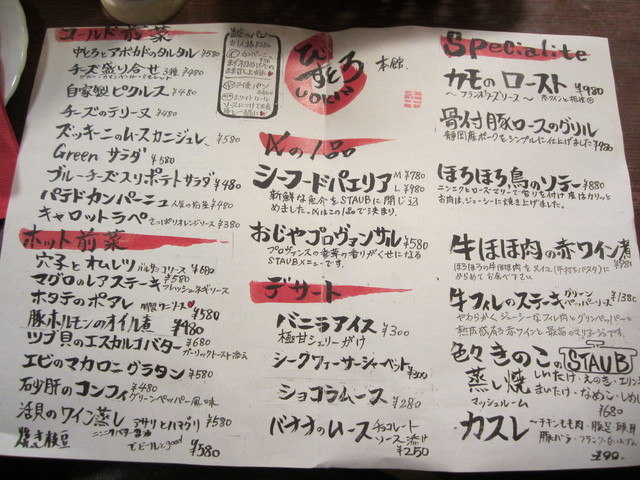 コールド前菜
中とろとアボカドのタルタル ¥580
チーズ盛り合せ 3種 ¥980
自家製ピクルス ¥480
チーズのテリーヌ ¥480
ズッキーニのムース カニジュレ ¥580
Green サラダ ¥580
ブルーチーズスリポテトサラダ ¥480
パテドカンパーニュ 人気の前菜 ¥480
キャロットラペ さっぱりオレンジソース ¥380
ホット前菜
穴子とオムレツ バルサミコソース ¥680
マグロのレアステーキ ¥580
フレッシュオニオンソース
ホタテのポアレ ¥580
豚ホルモンのオイル煮 ¥480
ツブ貝のエスカルゴバター ¥680
ガーリックトースト添え
エビのマカロニグラタン ¥580
石砂肝のコンフィ ¥480
グリーンペッパー風味
活貝のワイン蒸し アサリとハマグリ
ニンニクバター醤油 ¥580
焼き枝豆 でビールとgood
びすとろ
UOKIN
本館
〆の1品
シーフードパエリア M ¥780
L ¥980
新鮮な魚介をSTAUBに閉じ込
めました。〆はこの1品で決まり。
おじやプロヴァンサル ¥580
プロヴァンスの香草の香りがくせになる
STAUBメニューです。
デザート
バニラアイス ¥300
極甘シェリーがけ
シークワァーサーシャーベット ¥300
ショコラムース ¥280
バナナのムース チョコレート
ソース添え
¥250
Specialite
カモのロースト ¥980
~フランボワーズソース~ 赤ワインと相性◎
骨付豚ロースのグリル
静岡産ポークをシンプルに仕上げました ¥980
ほろほろ鳥のソテー ¥880
ニンニクとローズマリーで香りを付け皮はカリッと
お肉は、ジューシーに焼き上げました。
牛ほほ肉の赤ワイン煮
¥980
からめてお召べ下さい
牛フィレのステーキ グリーン
ペッパーソース ¥1380
やわらかく、ジューシーなフィレ肉とグリンペッパーを
熟成感有る赤ワインと最高のマリアージュです。
色々きのこのSTAUB
蒸し焼 しいたけ・えのき・エリンギ
まいたけ・なめこ・しめじ
マッシュルーム ¥680
カスレ ~チキンもも肉・豚足・豚耳
豚バラ・フランク・白いんげん